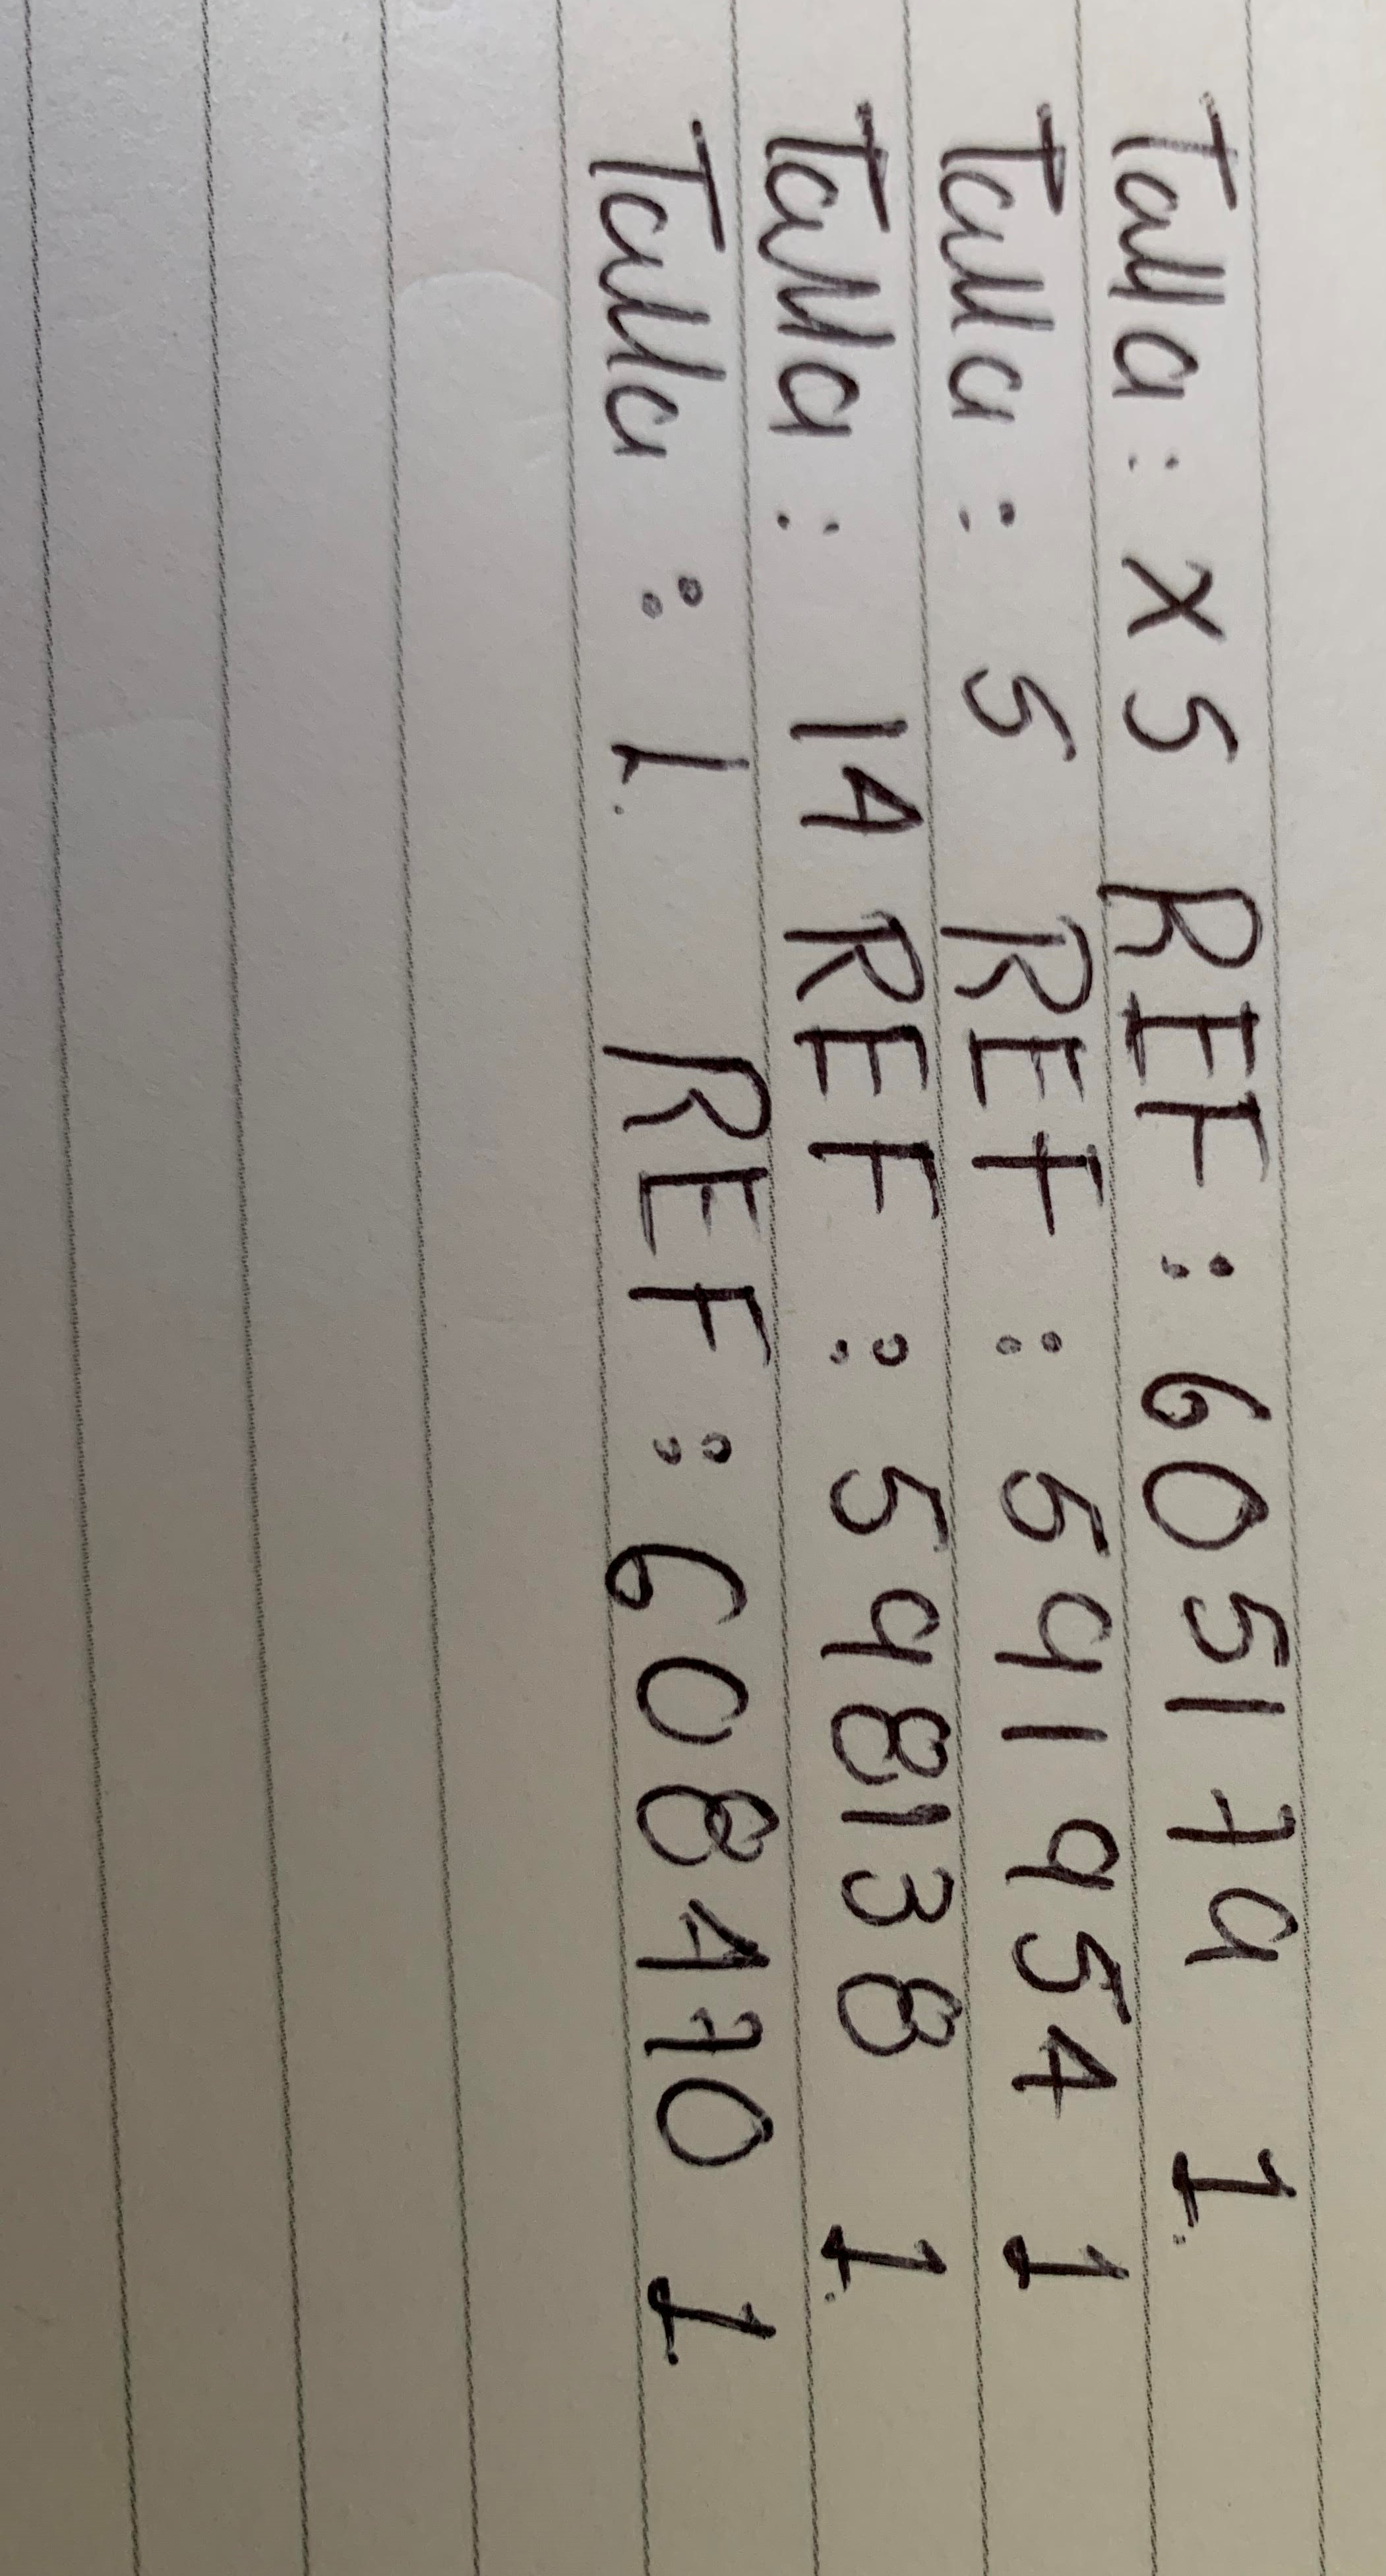 Talla: XS REF: 605179 1.
Talla: S REF: 591954 1
Talla: 14 REF: 598138 1.
Talla: 1. REF: 608470 1.